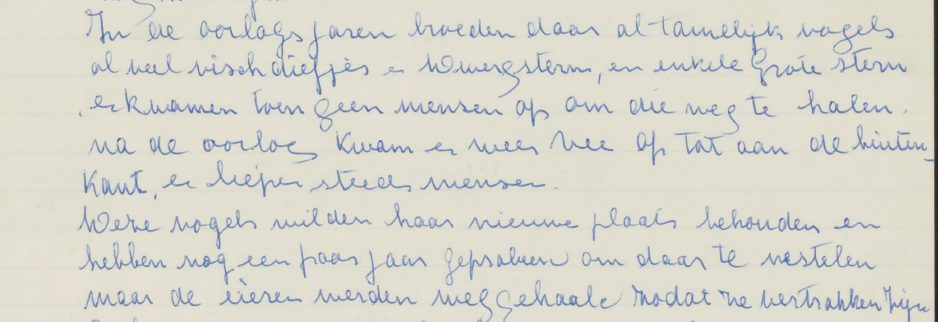 In de oorlogsjaren broeden daar al tamelijk vogels
al veel vischdiefjes en Dwergstern, en enkele Grote stern
er kwamen toen geen mensen op om die weg te halen.
na de oorlog kwam er weer vee op tot aan de buiten-
kant, er liepen steeds mensen.
Deze vogels wilden haar nieuwe plaats behouden en
hebben nog een paar jaar geprobeerd om daar te nestelen
maar de eieren werden weggehaald zodat ze vertrokken zijn